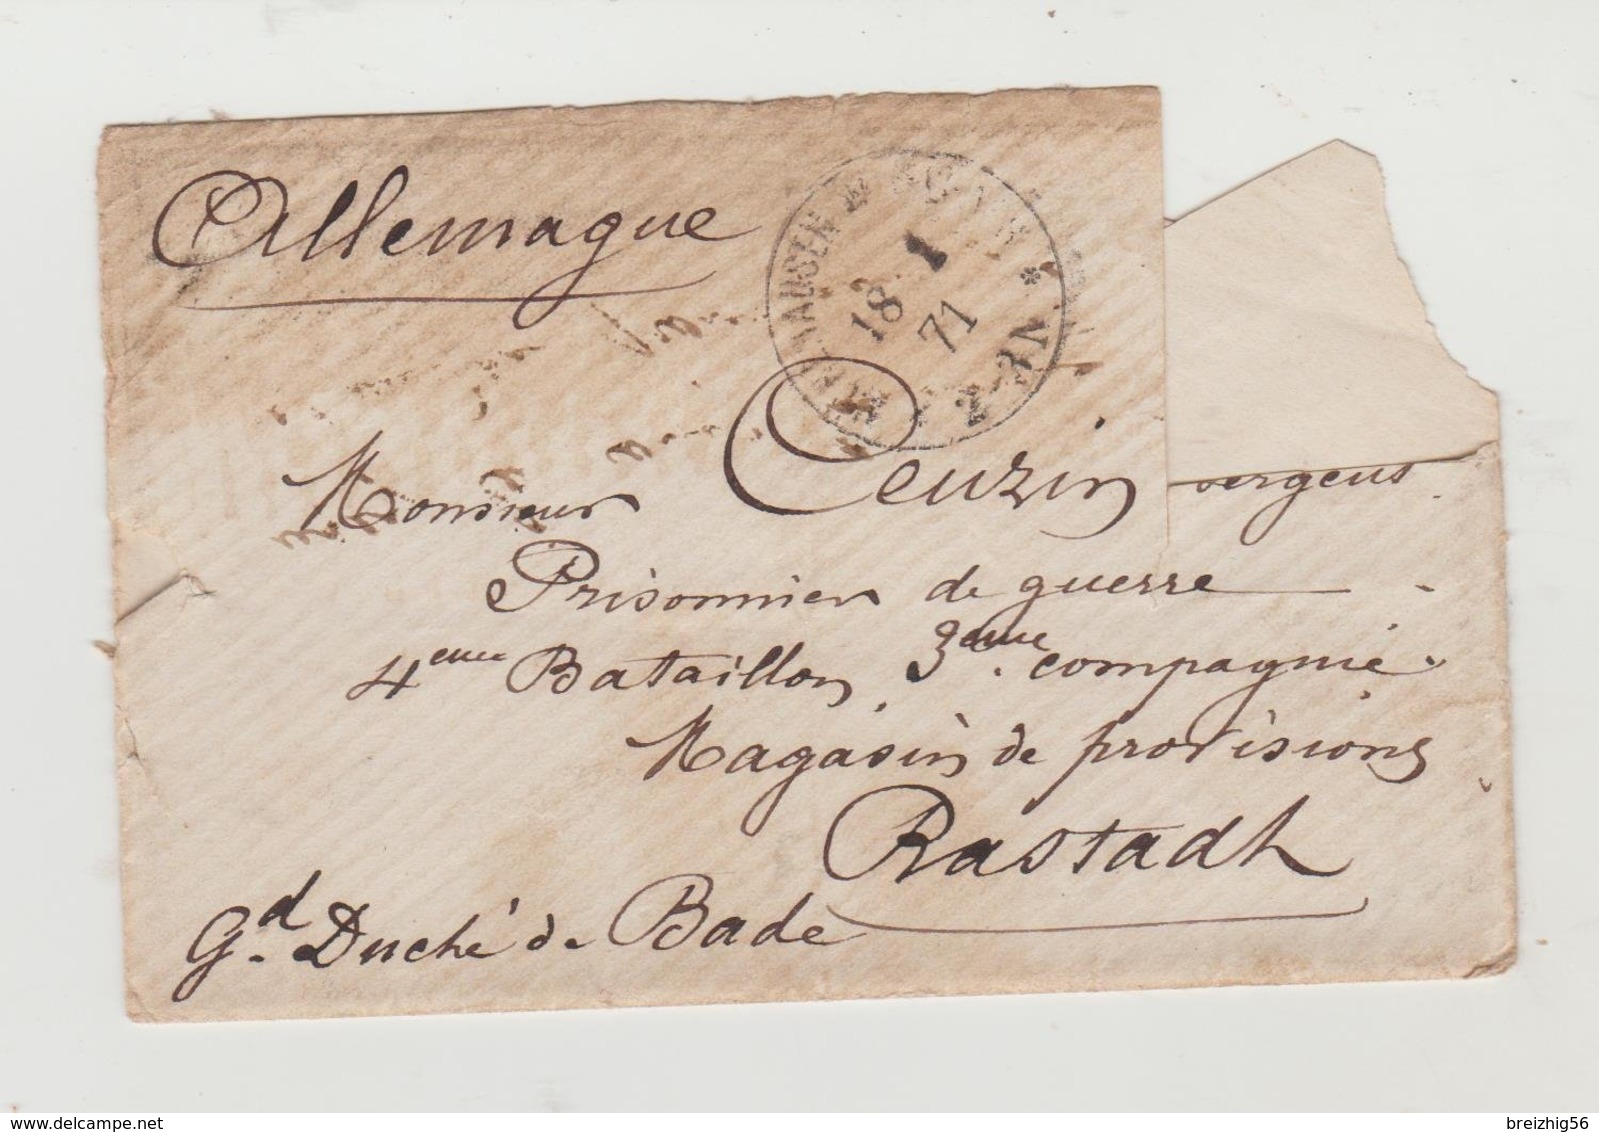 Allemagne
18 1
71
2-3N
Monsieur Ceuzin
Prisonnier de guerre
4eme Bataillon, 3eme compagnie
Magasin de provisions
Rastadh
Gd. Duché de Bade
delcampe.net
breizhig56